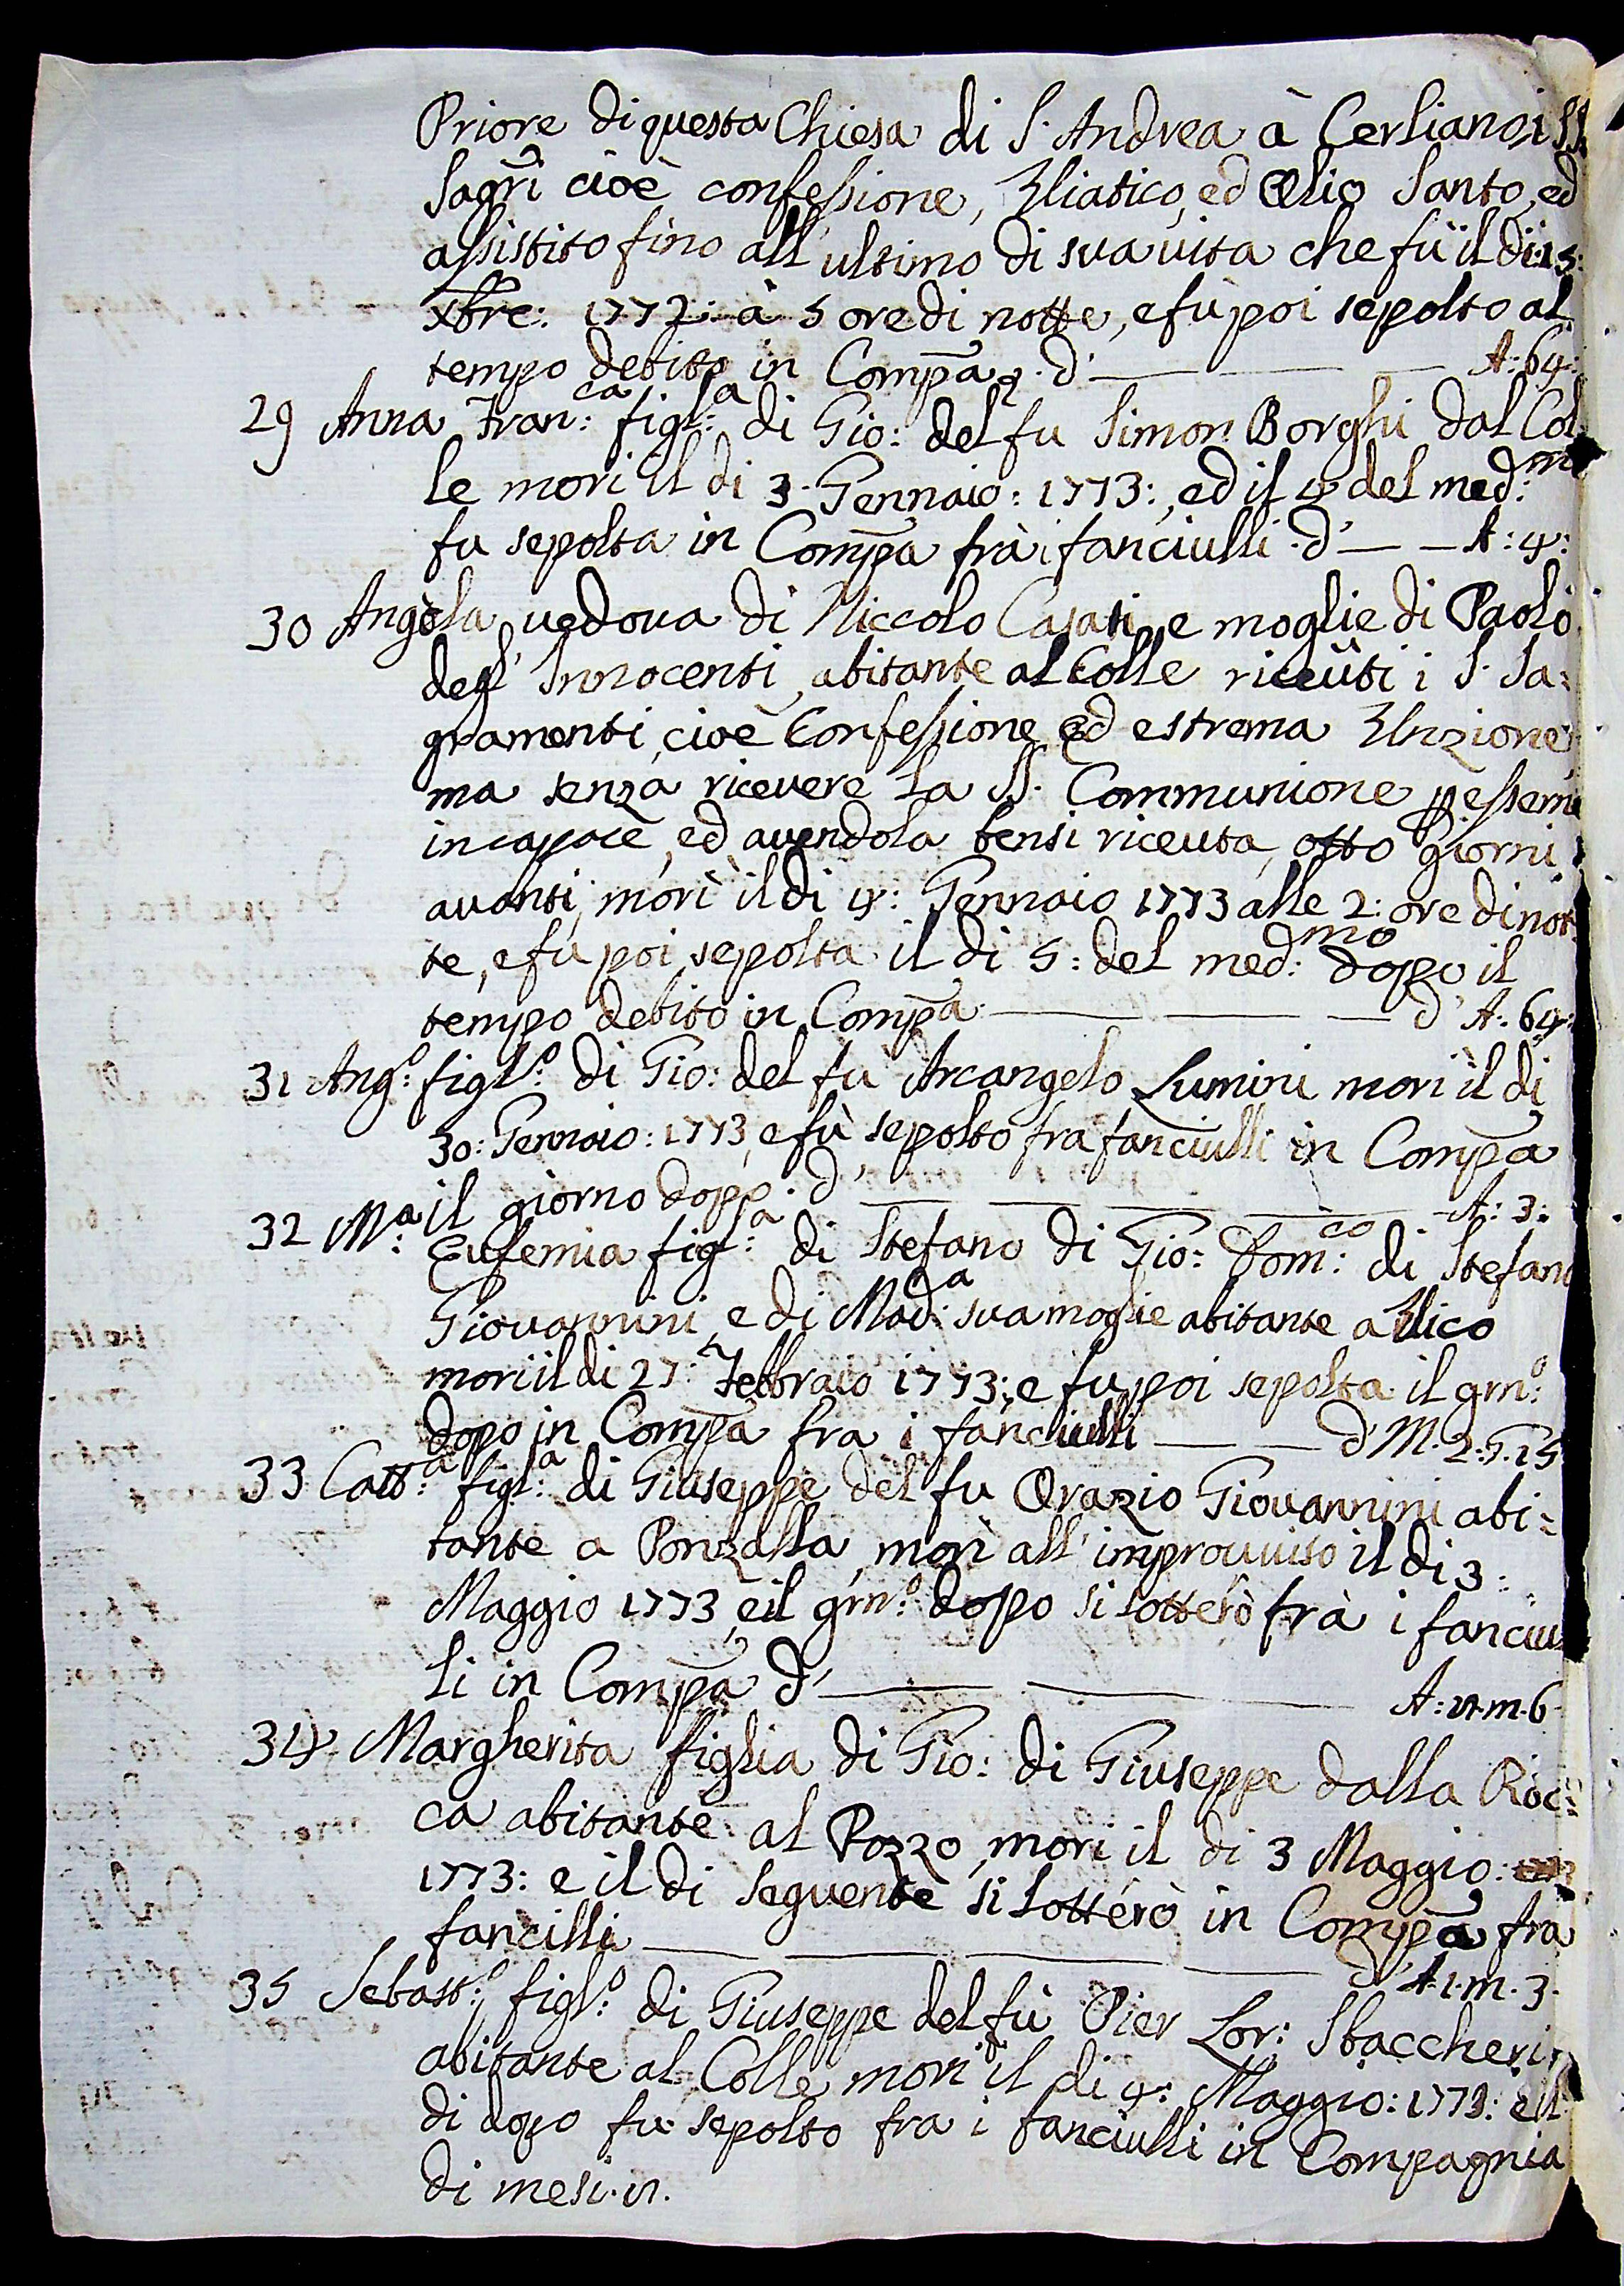 Priore di questa Chiesa di S. Andrea à Cerliano i SS.
Sagri cioè confessione, Viatico, ed Olio Santo, ed
assistito fino all'ultimo di sua vita che fù il di: 15:
Xbre: 1772: à 5 ore di notte, e fù poi sepolto al
tempo debito in Compa. d' A: 64:
29 Anna Fran:ca figl:a di Gio: del fu Simon Borghi dal Col
le mori il di 3. Gennaio: 1773:, ed il 4 del med:mo
fu sepolta in Compa frà i fanciulli. d' A: 4:
30 Angela vedova di Niccolo Casati, e moglie di Paolo
degl' Innocenti, abitante al Colle riceuti i S. Sa:
gramenti, cioè Confessione ed estrema Unzione
ma senza ricevere la SS. Communione p esserne
incapace, ed avendola bensi riceuta, otto giorni
avanti, morì il di 4: Gennaio 1773 alle 2: ore di not
te, e fu poi sepolta il di 5: del med:mo dopo il
tempo debito in Compa: d' A: 64:
31 Ang:o figl:o di Gio: del fù Arcangelo Lumini mori il di
30: Gennaio: 1773, e fù sepolto fra fanciulli in Compa
il giorno doppo. d' A: 3:
32 M:a Eufemia figl:a di Stefano di Gio: Dom:co di Stefano
Giovannini, e di Mad:a sua moglie abitante a Vico
mori il di 27: Febbraio 1773:, e fu poi sepolta il grn:o
dopo in Compa fra i fanciulli d' M. 2. G. 15
33 Catt:a figl:a di Giuseppe del fu Orazio Giovannini abi:
tante a Ponzalla, morì all' improvviso il di 3:
Maggio 1773, e il grn:o dopo si sotterò frà i fanciul
li in Compa d' A: 4. m. 6
34 Margherita figlia di Gio: di Giuseppe dalla Roc:
ca abitante al Pozzo, mori il di 3 Maggio:
1773: e il di seguente si sotterò in Compa fra
fancilli d' A. 1. m. 3.
35 Sebast:o figl:o di Giuseppe del fù Pier Lor: Staccheri,
abitante al Colle, mori il di 4: Maggio: 1773: e il
di dopo fu sepolto fra i fanciulli in Compagnia
di mesi.